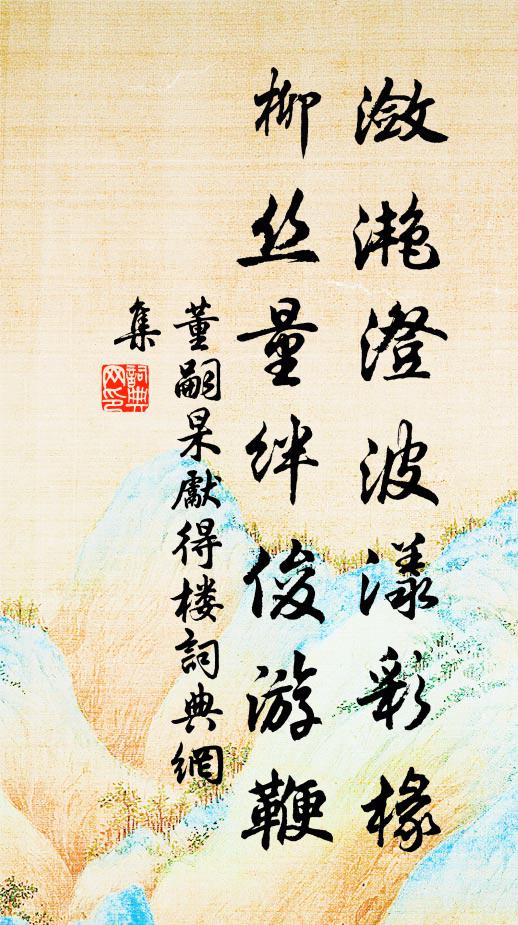 潋滟澄波漾彩椽
柳丝量绊俊游鞭
董嗣杲獻得楼詞典網
集
詞典網印